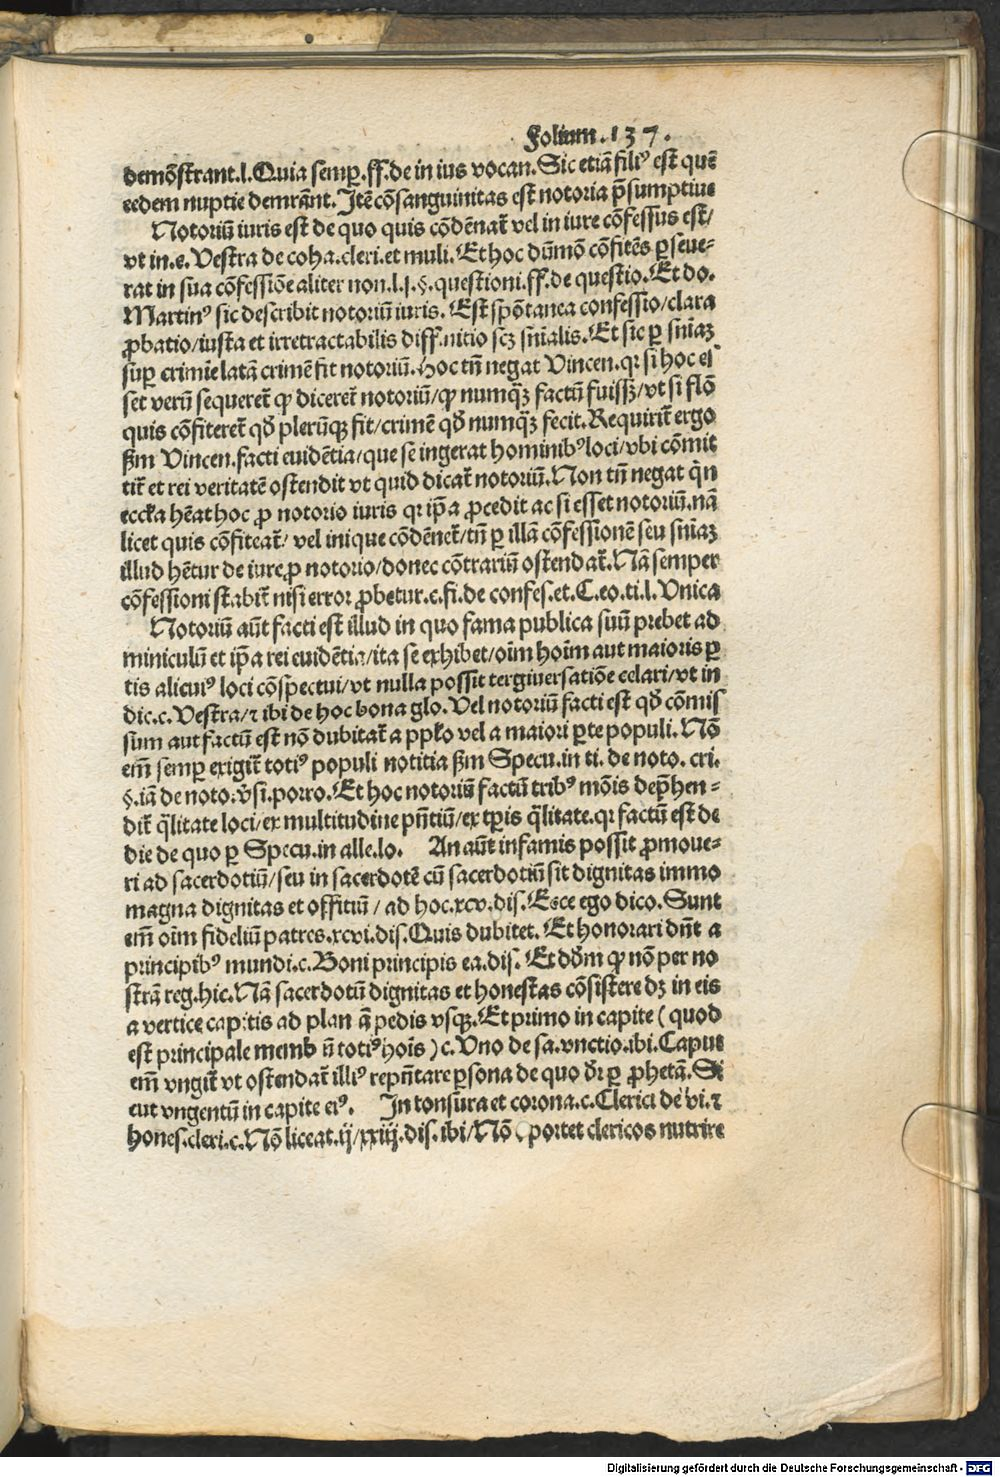 Folium.137.
demõstrant.l.Quia semꝑ.ff.de in ius vocan.Sic etiã filiꝰ est quẽ
eedem nuptie demrãnt.Itẽ cõsanguinitas est notoria p̃sumptiue
Notoriũ iuris est de quo quis cõdẽnat̃ vel in iure cõfessus est/
vt in.e.Vestra de coha.cleri.et muli.Et hoc dũmõ cõfitẽs ꝑseue-
rat in sua cõfessiõe aliter non.l.j.§.questioni.ff.de questio.Et do.
Martinꝰ sic describit notoriũ iuris. Est spõtanea confessio/clara
ꝓbatio/iusta et irretractabilis diffinitio scꝫ sñialis.Et sic ꝑ sñiaꝫ
suꝑ crimĩe latã crimẽ fit notoriũ.Hoc tñ negat Vincen.qꝛ si hoc eſ
set verũ sequeret̃ ꝙ diceret̃ notoriũ/ꝙ numq̃ꝫ factũ fuissꝫ/vt si flõ
quis cõfiteret̃ qđ plerũqꝫ fit/crimẽ qđ numq̃ꝫ fecit.Requirit̃ ergo
ẞm Vincen.facti euidẽtia/que se ingerat hominibꝰ loci/vbi cõmit
tit̃ et rei veritatẽ ostendit vt quid dicat̃ notoriũ.Non tñ negat q̃n
eccłia hẽat hoc ꝓ notorio iuris qꝛ ip̃a ꝓcedit ac si esset notoriũ.nã
licet quis cõfiteat̃/ vel inique cõdẽnet̃/tñ ꝑ illã cõfessionẽ seu sñiaꝫ
illud hẽtur de iure ꝓ notorio/donec cõtrariũ ostendat̃.Nã semper
cõfessioni stabit̃ nisi error ꝓbetur.c.fi.de confes.et.C.eo.ti.l.Vnica
Notoriũ aũt facti est illud in quo fama publica suũ prebet ad
miniculũ et ip̃a rei euidẽtia/ita se exhibet/oĩm hoĩm aut maioris ꝑ
tis alicuiꝰ loci cõspectui/vt nulla possit tergiuersatiõe celari/vt in
dic.c.Vestra/⁊ ibi de hoc bona glo.Vel notoriũ facti est qđ cõmiſ
sum aut factũ est nõ dubitat̃ a ppło vel a maiori ꝑte populi.Nõ
em̃ semꝑ exigit̃ totiꝰ populi notitia ẞm Specu.in ti.de noto.cri.
§.iã de noto.v̾si.porro.Et hoc notoriũ factũ tribꝰ mõis dep̃hen-
dit̃ q̃litate loci/ex multitudine pñtiũ/ex tꝑis q̃litate.qꝛ factũ est de
die de quo ꝑ Specu.in alle.lo. An aũt infamis possit ꝓmoue-
ri ad sacerdotiũ/seu in sacerdotẽ cũ sacerdotiũ sit dignitas immo
magna dignitas et offitiũ/ ad hoc.xcv.dis.Ecce ego dico.Sunt
em̃ oĩm fideliũ patres.xcvi.dis.Quis dubitet.Et honorari dñt a
principibꝰ mundi.c.Boni principis ea.dis.Et dđm ꝙ nõ per no
strã reg.hic.Nã sacerdotũ dignitas et honestas cõsistere dꝫ in eis
a vertice capitis ad plantã pedis vsqꝫ.Et primo in capite (quod
est principale membrũ totiꝰ hoĩs)c.Vno de sa.vnctio.ibi.Caput
em̃ vngit̃ vt ostendat̃ illiꝰ rep̃ñtare ꝑsona de quo dꝛ̃ ꝑ ꝓphetã.Si
cut vngentũ in capite eiꝰ. In tonsura et corona.c.Clerici de vi.⁊
hones.cleri.c.Nõ liceat.ij/xxiij.dis.ibi/Nõ oportet clericos nutrire
Digitalisierung gefördert durch die Deutsche Forschungsgemeinschaft - DFG